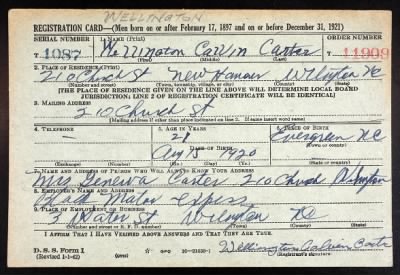 WELLINGTON
REGISTRATION CARD—(Men born on or after February 17, 1897 and on or before December 31, 1921)
SERIAL NUMBER 1. NAME (Print) ORDER NUMBER
1087 Wellington Calvin Carter 11909
(First) (Middle) (Last)
2. PLACE OF RESIDENCE (Print)
210 Church St New Hanover Wilmington NC
(Number and street) (Town, township, village, or city) (County) (State)
[THE PLACE OF RESIDENCE GIVEN ON THE LINE ABOVE WILL DETERMINE LOCAL BOARD
JURISDICTION; LINE 2 OF REGISTRATION CERTIFICATE WILL BE IDENTICAL]
3. MAILING ADDRESS
210 Church St
[Mailing address if other than place indicated on line 2. If same insert word same]
4. TELEPHONE 5. AGE IN YEARS 6. PLACE OF BIRTH
21 Evergreen
DATE OF BIRTH
Aug 1920 NC
(Exchange) (Number) (Mo.) (Day) (Yr.) (State or country)
7. NAME AND ADDRESS OF PERSON WHO WILL ALWAYS KNOW YOUR ADDRESS
Mrs Geneva Carter 210 Church Wilmington
8. EMPLOYER'S NAME AND ADDRESS
Motor Express
9. PLACE OF EMPLOYMENT OR BUSINESS
Water St NC
(Number and street or R. F. D. number) (Town) (County) (State)
I AFFIRM THAT I HAVE VERIFIED ABOVE ANSWERS AND THAT THEY ARE TRUE.
D. S. S. Form 1
(Revised 1-1-42) (over) Wellington Calvin Carter
(Registrant's signature)